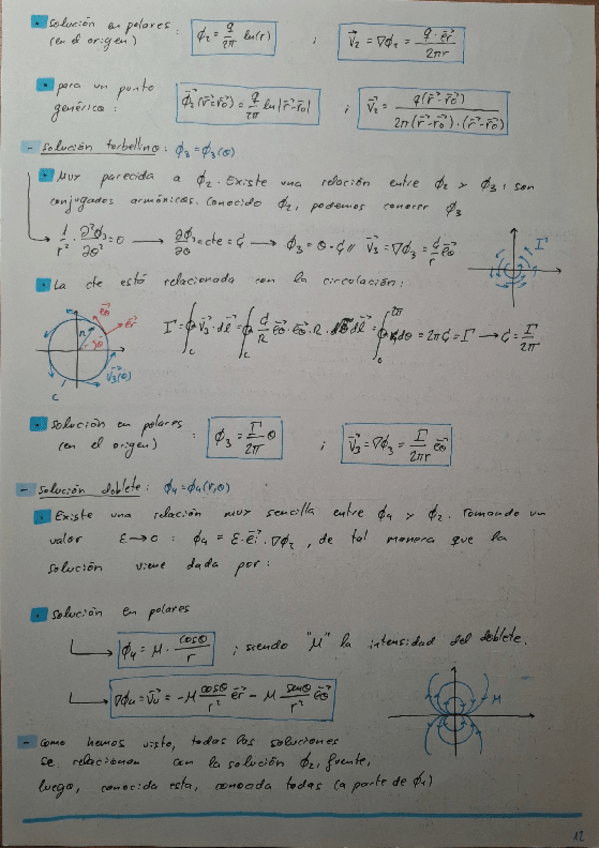 · Solución en polares : ϕ₂ = q/2π ln(r) ; V⃗₂ = ∇ϕ₂ = q · e⃗r / 2πr
(en el origen)
· para un punto ϕ⃗₂(r⃗=r⃗₀) = q/2π ln|r⃗-r⃗₀| ; V⃗₂ = q(r⃗-r⃗₀) / 2π(r⃗-r⃗₀)·(r⃗-r⃗₀)
genérico :
- Solución torbellino: ϕ₃ = ϕ₃(θ)
· Muy parecida a ϕ₂. Existe una relación entre ϕ₂ y ϕ₃, son
conjugados armónicos. Conocido ϕ₂, podemos conocer ϕ₃
→ 1/r² · ∂²ϕ₃/∂θ² = 0 → ∂ϕ₃/∂θ = cte = G → ϕ₃ = θ · G // V⃗₃ = ∇ϕ₃ = G/r e⃗θ
Γ
· La cte está relacionada con la circulación:
e⃗θ
e⃗r
R
θ
V⃗₃(θ)
C
Γ = ∮c V⃗₃ · dl⃗ = ∮c G/R e⃗θ · e⃗θ · R · dθ = ∮₀^2π G dθ = 2πG = Γ → G = Γ/2π
· Solución en polares : ϕ₃ = Γ/2π θ ; V⃗₃ = ∇ϕ₃ = Γ/2πr e⃗θ
(en el origen)
- Solución doblete: ϕ₄ = ϕ₄(r,θ)
· Existe una relación muy sencilla entre ϕ₄ y ϕ₂. Tomando un
valor ε→0 : ϕ₄ = ε · e⃗i · ∇ϕ₂ , de tal manera que la
solución viene dada por :
· Solución en polares
→ ϕ₄ = M · cosθ/r ; siendo "M" la intensidad del doblete.
→ ∇ϕ₄ = V⃗₄ = -M cosθ/r² e⃗r - M senθ/r² e⃗θ
M
- Como hemos visto, todas las soluciones
se relacionan con la solución ϕ₂, fuente,
luego, conocida esta, conocida todas (a parte de ϕ₁)
12